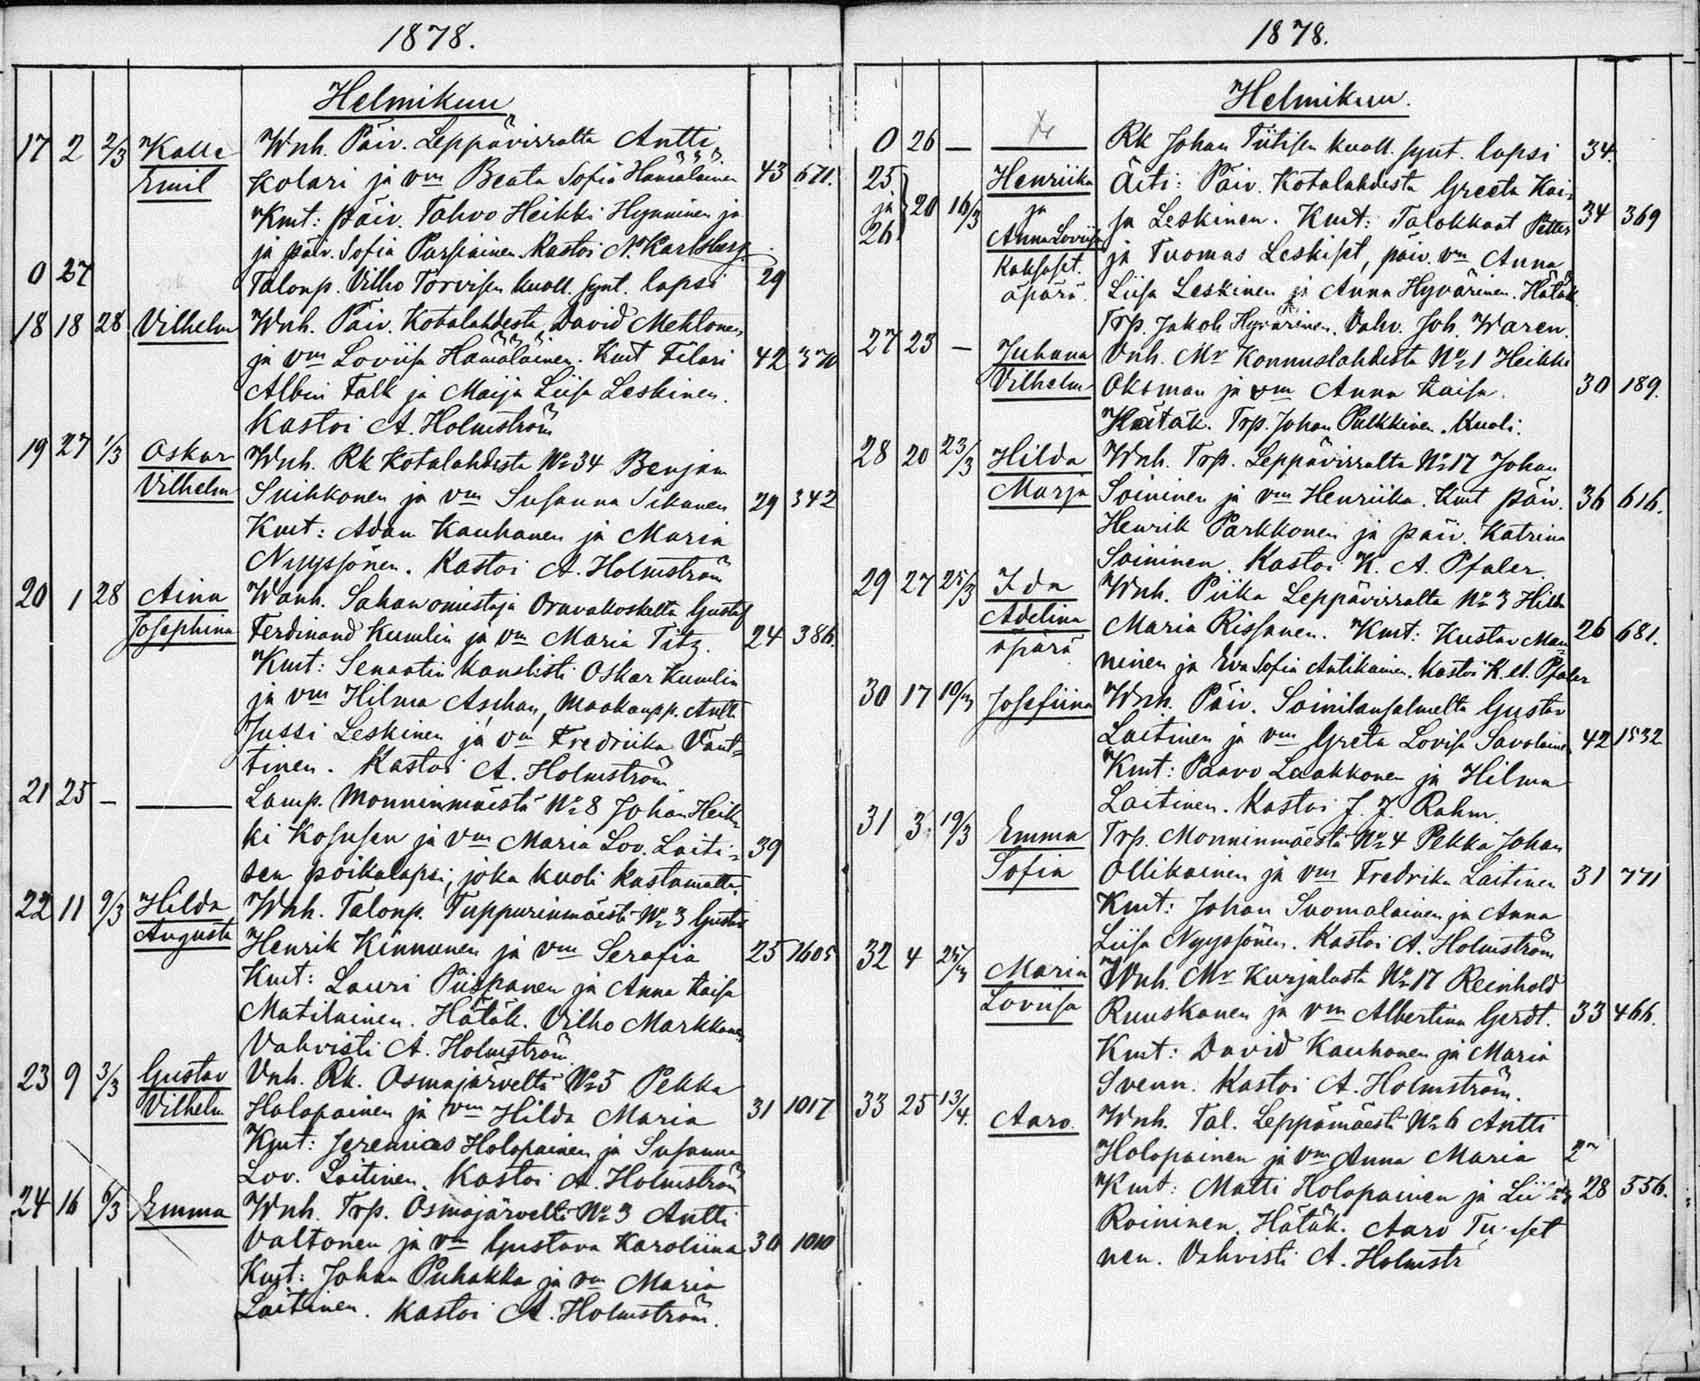 1878.
Helmikuu
17 2 2/3 Kalle Wnh. Päiv. Leppävirralta Antti
Emil Kolari ja vm Beata Sofia Hämäläinen 43 671.
Kmt: päiv. Tahvo Heikki Hynninen ja
ja päiv. Sofia Parsiainen. Kastoi N. Karlsberg.
0 27 Talonp. Vilho Torvisen kuoll. synt. lapsi 29
18 18 28 Vilhelm Wnh. Päiv. Kotalahdesta, David Mehtonen
ja vm Loviisa Hämäläinen. Kmt Filari 42 370
Albin Falk ja Maija Liisa Leskinen.
Kastoi A. Holmström
19 27 1/3 Oskar Wnh. Rk Kotalahdesta No 34 Benjam
Vilhelm Suihkonen ja vm Susanna Sikanen 29 342
Kmt: Adam Kauhanen ja Maria
Nyyssönen. Kastoi A. Holmström
20 1 28 Aina Wanh. Sahan omistaja Oravakoskelta Gustaf
Josephina Ferdinand Kumlin ja vm Maria Titz. 24 386.
Kmt: Senaatin kanslisti Oskar Kumlin
ja vm Hilma Aschan, Maakaupp. Antti
Jussi Leskinen ja vm Fredriika Vant=
tinen. Kastoi A. Holmström
21 25 — Lamp. Monninmäestä No 8 Johan Heik=
ki Kososen ja vm Maria Lov. Laiti= 39
sen poikalapsi, joka kuoli kastamatta.
22 11 9/3 Hilda Wnh. Talonp. Tuppurinmäestä No 3 Gustav
Augusta Henrik Kinnunen ja vm Serafia 25 1605
Kmt: Lauri Piispanen ja Anna Kaisa
Matilainen. Hätäk. Vilho Markkanen
Vahvisti A. Holmström.
23 9 3/3 Gustav Vnh. Rk. Osmajärveltä No 5 Pekka
Vilhelm Holopainen ja vm Hilda Maria 31 1017
Kmt: Jeremias Holopainen ja Susanna
Lov. Laitinen. Kastoi A. Holmström
24 16 6/3 Emma Wnh. Trp. Osmajärveltä No 3 Antti
Valtonen ja vm Gustava Karoliina 30 1010
Kmt: Johan Puhakka ja vm Maria
Laitinen. Kastoi A. Holmström.
1878.
Helmikuu.
0 26 — Rk Johan Tiitisen kuoll. synt. lapsi 34.
25 Henriika Äiti: Päiv. Kotalahdesta Greeta Kai=
ja 20 16/3 ja sa Leskinen. Kmt: Talokkaat Petter 34 369
26 Anna Loviisa ja Tuomas Leskiset, päiv. vm Anna
Kaksoset. Liisa Leskinen ja Anna Hyvärinen. Hätäk.
äpärä. Trp. Jakob Hyvärinen. Vahv. Joh. Waren.
27 23 — Juhana Vnh. Mr Konnuslahdesta No 1 Heikki
Vilhelm Oksman ja vm Anna Kaisa. 30 189.
Hätäk. Trp. Johan Pulkkinen. Kuoli.
28 20 23/3 Hilda Wnh. Trp. Leppävirralta No 17 Johan
Marja Soininen ja vm Henriika. Kmt päiv. 36 616.
Henrik Parkkonen ja päiv. Katrina
Soininen. Kastoi K. A. Pfaler
29 27 25/3 Ida Wnh. Piika Leppävirralta No 3 Hilda
Adelina Maria Rissanen. Kmt: Kustav Man= 26 681.
äpärä ninen ja Eva Sofia Antikainen. Kastoi K. A. Pfaler
30 17 19/3 Josefiina Wnh. Päiv. Soinilansalmelta Gustav
Laitinen ja vm Greta Lovisa Savolainen 42 1532
Kmt: Paavo Laakkonen ja Hilma
Laitinen. Kastoi J. J. Rahm.
31 3 19/3 Emma Trp. Monninmäestä No 4 Pekka Johan
Sofia Ollikainen ja vm Fredrika Laitinen 31 771
Kmt: Johan Suomalainen ja Anna
Liisa Nyyssönen. Kastoi A. Holmström
32 4 25/3 Maria Wnh. Mr Kurjalasta No 17 Reinhold
Loviisa Ruuskanen ja vm Albertina Gerdt. 33 466.
Kmt: David Kauhanen ja Maria
Svenn. Kastoi A. Holmström.
33 25 13/4. Aaro. Wnh. Tal. Leppämäestä No 6 Antti
Holopainen ja vm Anna Maria
Kmt: Matti Holopainen ja 28 556.
Roininen. Hätäk. Aaro
nen. Vahvisti A. Holmstr